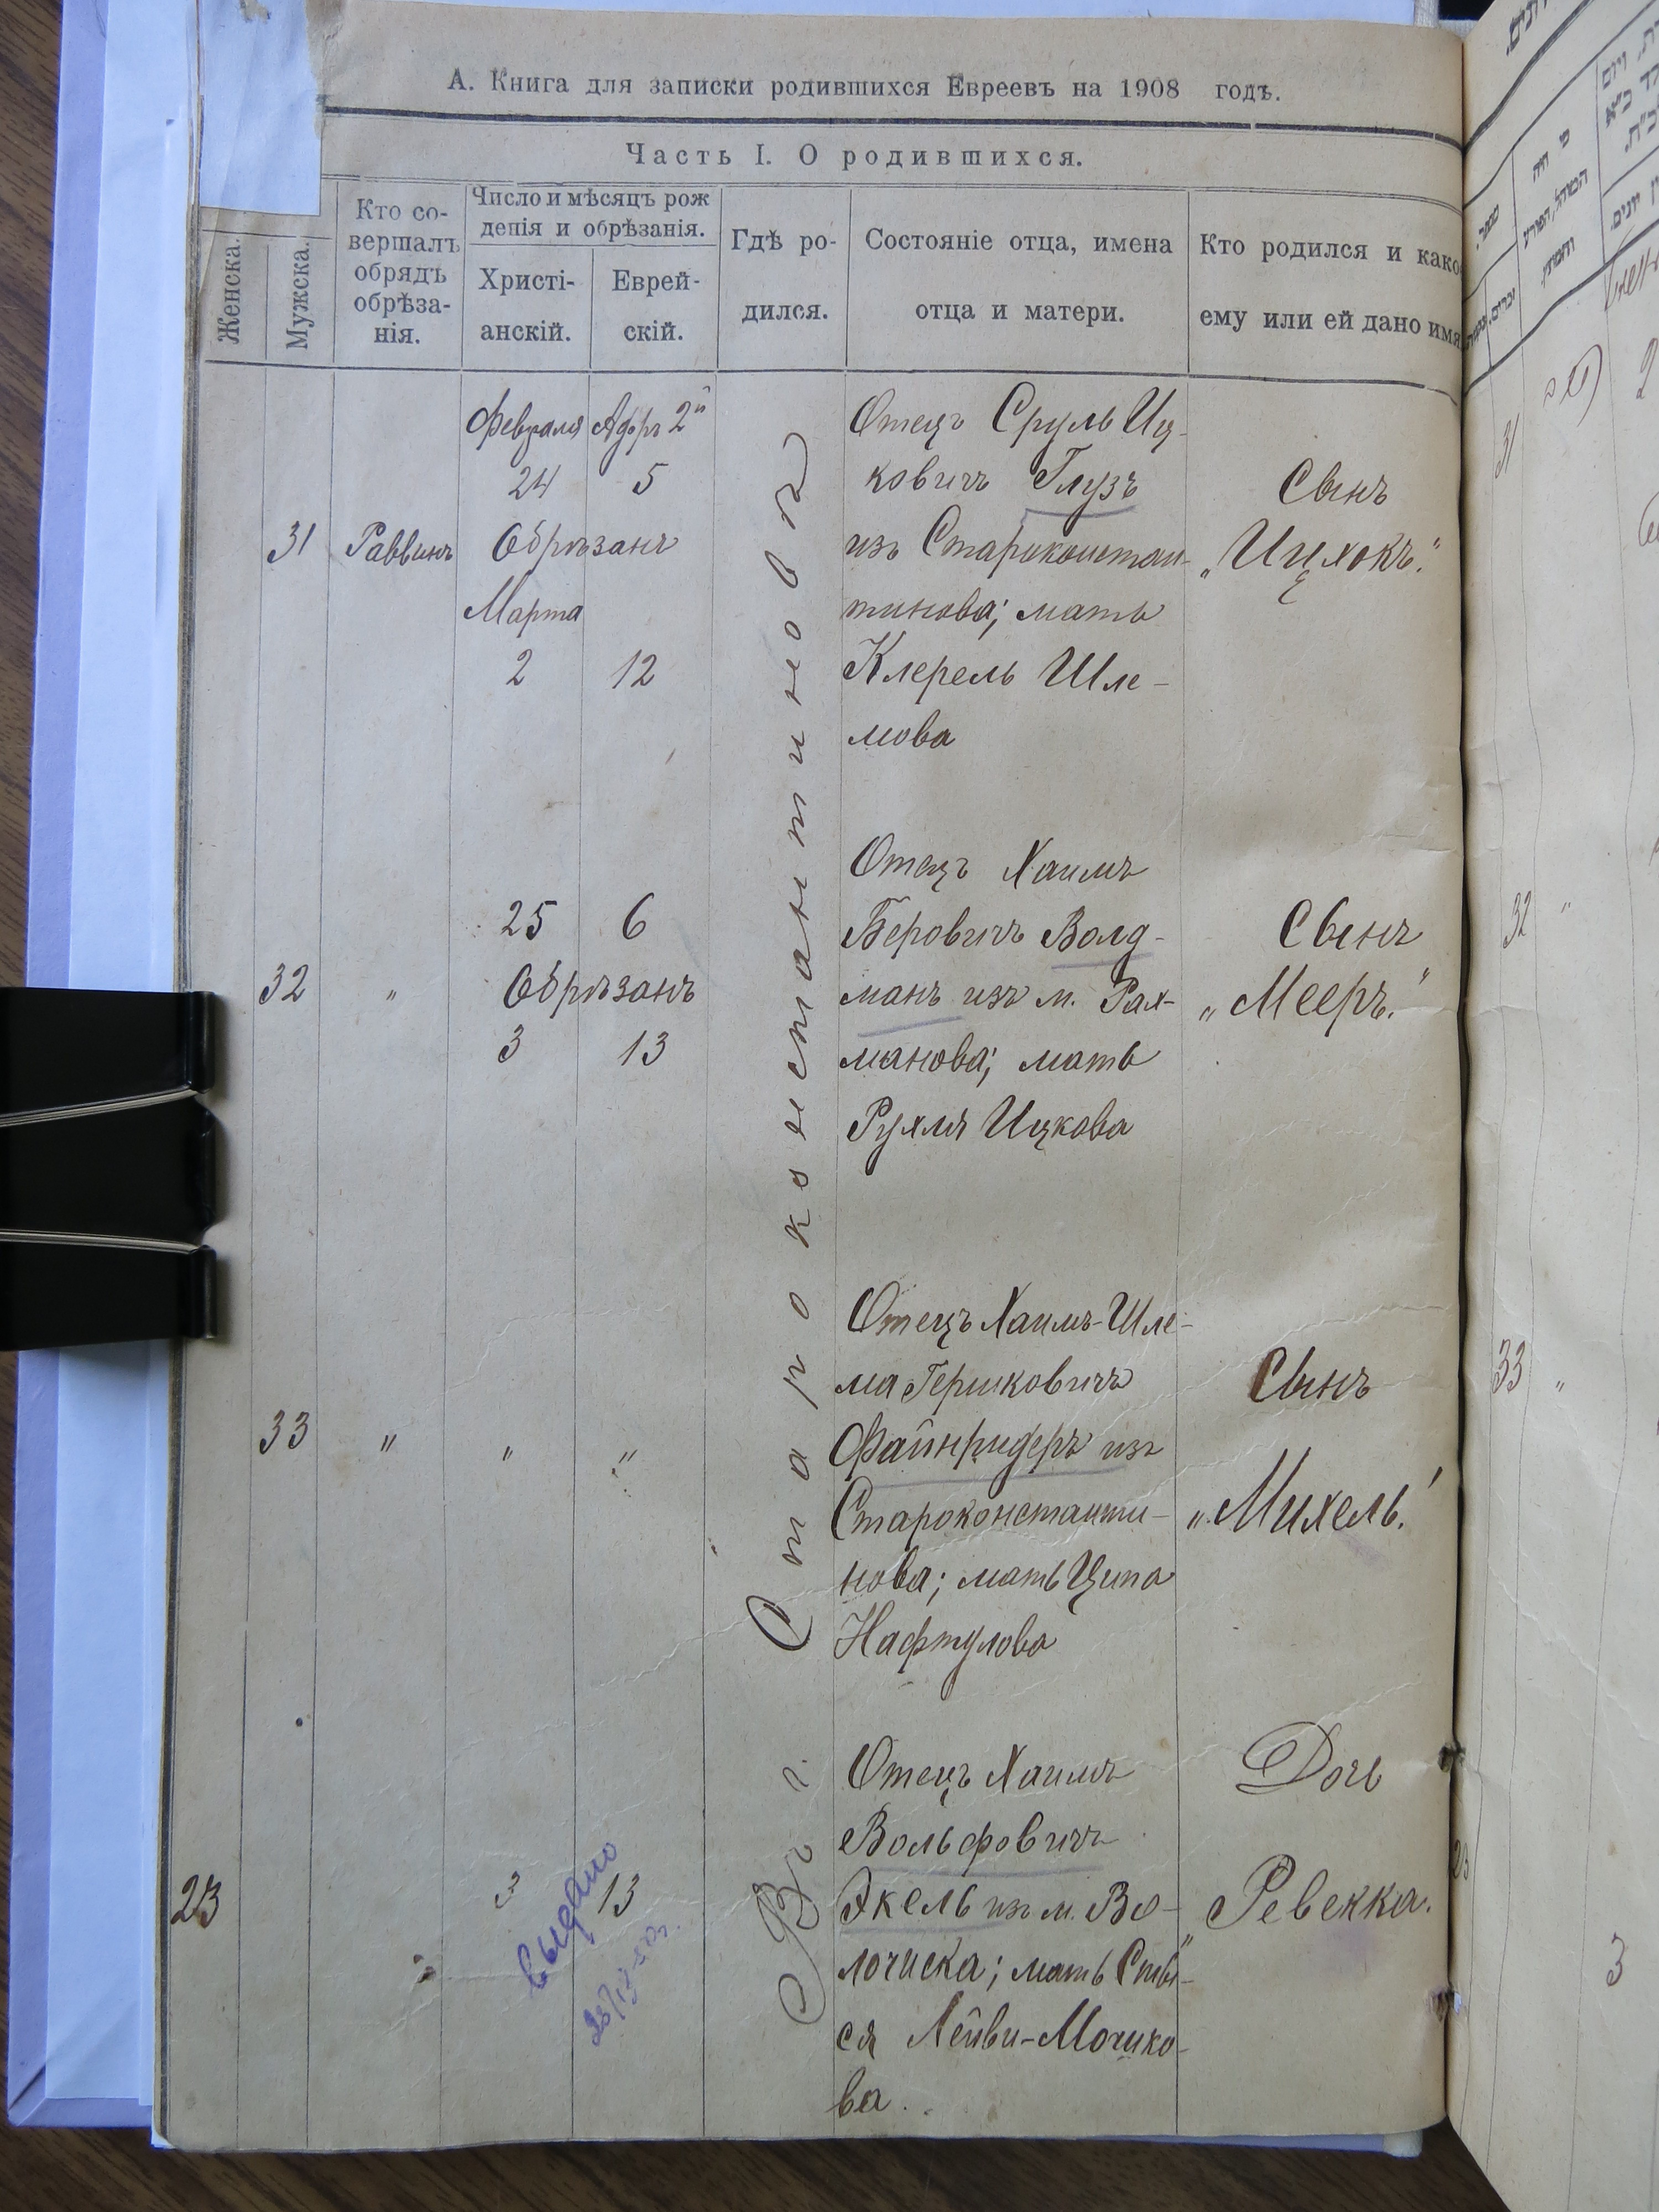 А. Книга для записки родившихся Евреевъ на 1908 годъ.
Часть I. О родившихся.
Женска.
Мужска.
Кто со-
вершалъ
обрядъ
обрѣза-
нія.
Число и мѣсяцъ рож
денія и обрѣзанія.
Христі-
анскій.
Еврей-
скій.
Гдѣ ро-
дился.
Состояніе отца, имена
отца и матери.
Кто родился и како
ему или ей дано имя
31
Раввинъ
Февраля Адфръ 2й
24 5
Обрѣзанъ
Марта
2 12
Въ г. Староконстантиновѣ
Отецъ Сруль Иц-
ковичъ Глузъ
изъ Староконстан-
тинова; мать
Клерель Шле-
мова
Сынъ
„Ицхокъ."
32
"
25 6
Обрѣзанъ
3 13
Отецъ Хаимъ
Беровичъ Волд-
манъ изъ м. Рах-
манова; мать
Рухля Ицкова
Сынъ
„Мееръ."
33
"
" "
Отецъ Хаимъ-Шле-
ма Гершковичъ
Файнридеръ изъ
Староконстанти-
нова; мать Ципа
Нафтулова
Сынъ
„Михель."
23
3 13
выдано
Отецъ Хаимъ
Вольфовичъ
Экель изъ м. Во-
лочиска; мать
ся Лейви-Мошко-
ва.
Дочь
Ревекка."
31
32
"
33
"
23
3